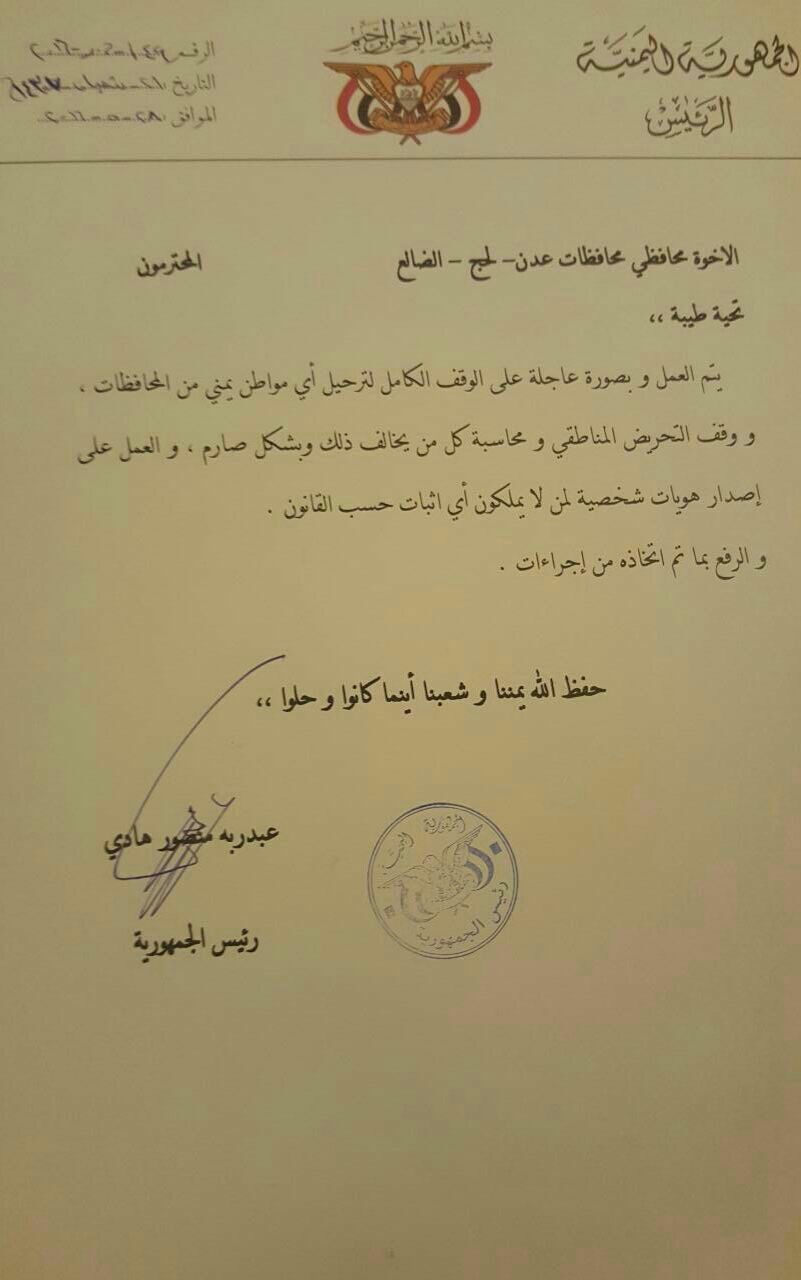 الجمهورية اليمنية
الرئيس
بسم الله الرحمن الرحيم
الرقم
التاريخ
الموافق
الاخوة محافظي محافظات عدن - لحج - الضالع المحترمون
تحية طيبة ،،
يتم العمل و بصورة عاجلة على الوقف الكامل لترحيل أي مواطن يمني من المحافظات ،
و وقف التحريض المناطقي و محاسبة كل من يخالف ذلك وبشكل صارم ، و العمل على
إصدار هويات شخصية لمن لا يملكون أي اثبات حسب القانون .
و الرفع بما تم اتخاذه من إجراءات .
حفظ الله يمننا و شعبنا أينما كانوا و حلوا ،،
عبدربه منصور هادي
رئيس الجمهورية
الجمهورية اليمنية
رئيس الجمهورية